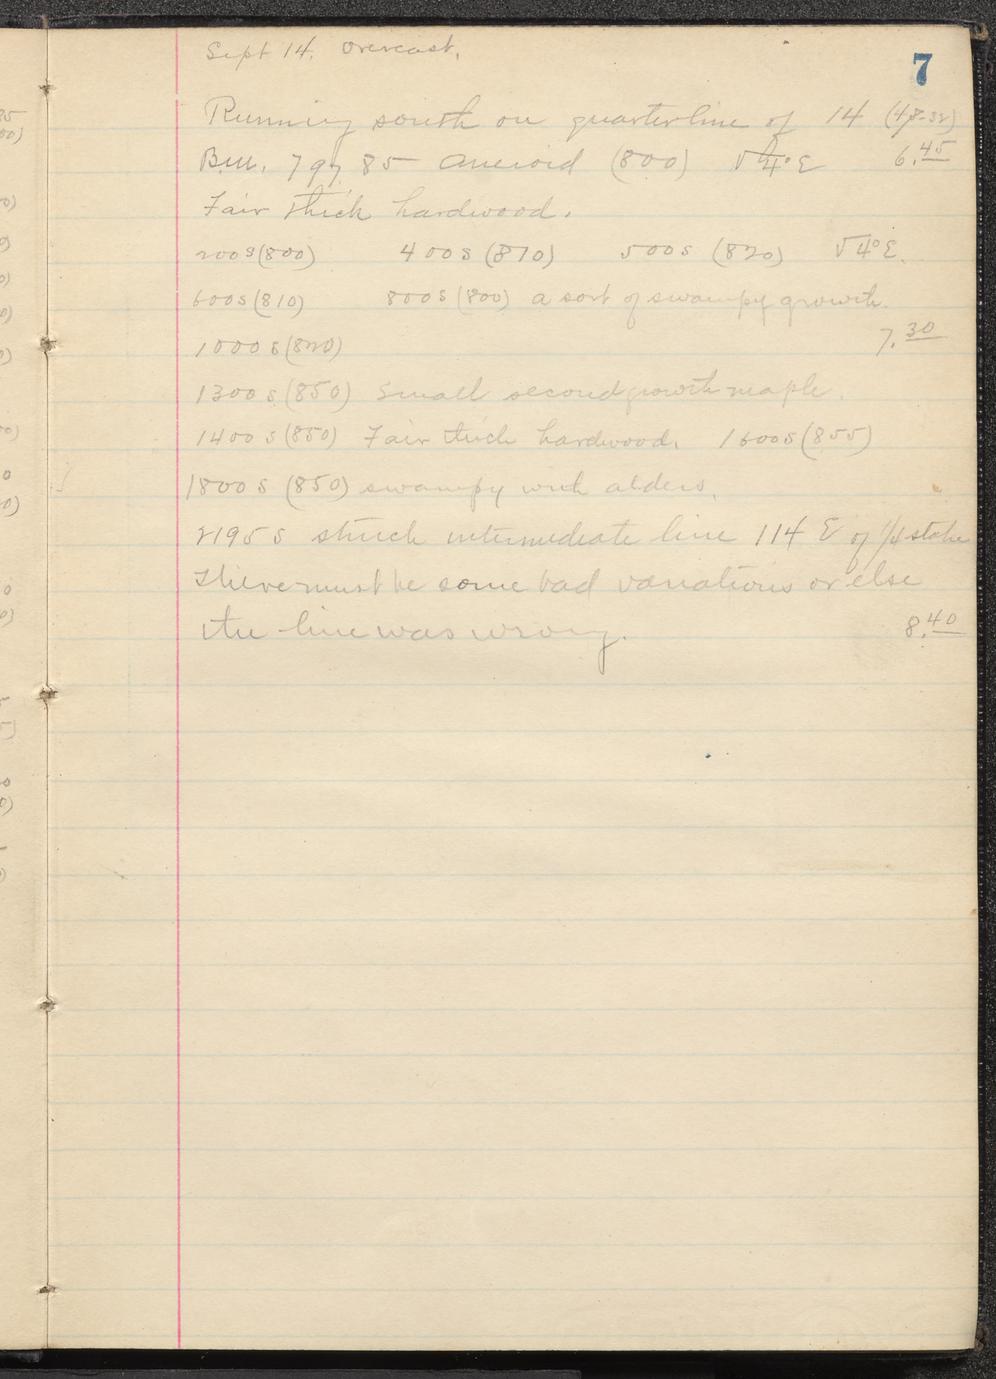 7
Sept 14. Overcast.
Running south on quarterline of 14 (47-32)
B.M. 797 85 aneroid (800) V 4° E 6.45
Fair thick hardwood.
200 S (800) 400 S (870) 500 S (820) V 4° E.
600 S (810) 800 S (800) a sort of swampy growth.
1000 S (820) 7.30
1300 S (850) Small second growth maple.
1400 S (850) Fair thick hardwood. 1600 S (855)
1800 S (850) swampy with alders.
2195 S struck intermediate line 114 E of 1/4 stake
There must be some bad variations or else
the line was wrong. 8.40